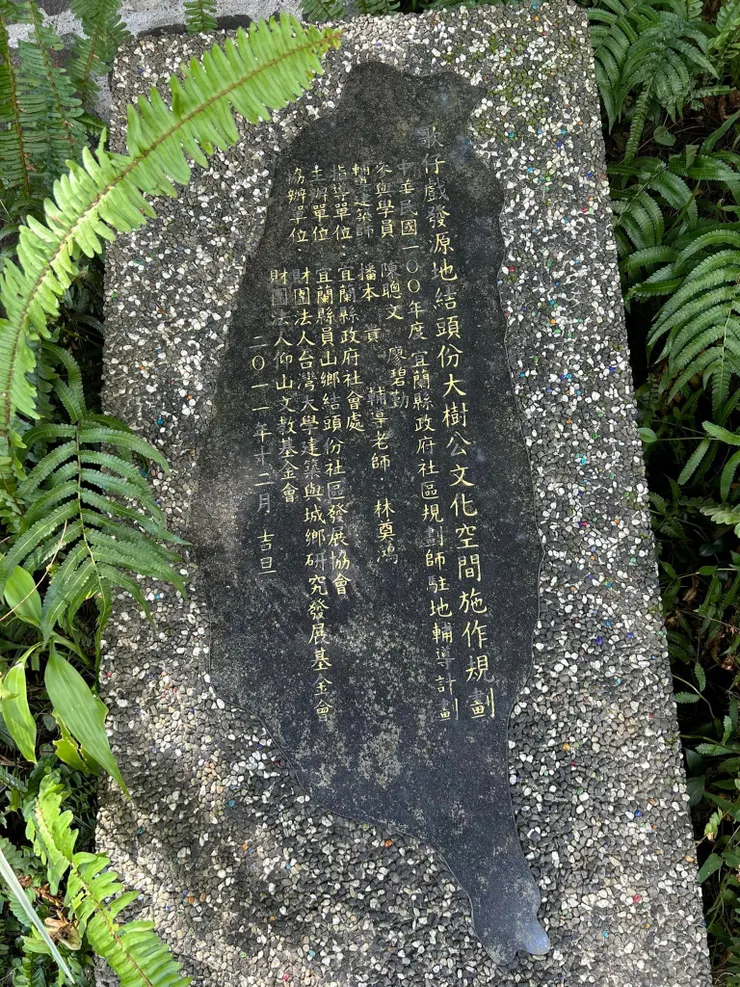 歌仔戲發源地結頭份大樹公文化空間施作規劃
中華民國一〇〇年度宜蘭縣政府社區規劃師駐地輔導計劃
參與學員 陳聰文 廖碧勤
輔導建築師 潘本 貢 輔導老師：林奠鴻
指導單位：宜蘭縣政府社會處
主辦單位：宜蘭縣員山鄉結頭份社區發展協會
財團法人台灣大學建築與城鄉研究發展基金會
協辦單位：財團法人仰山文教基金會
二〇一一年十二月 吉旦